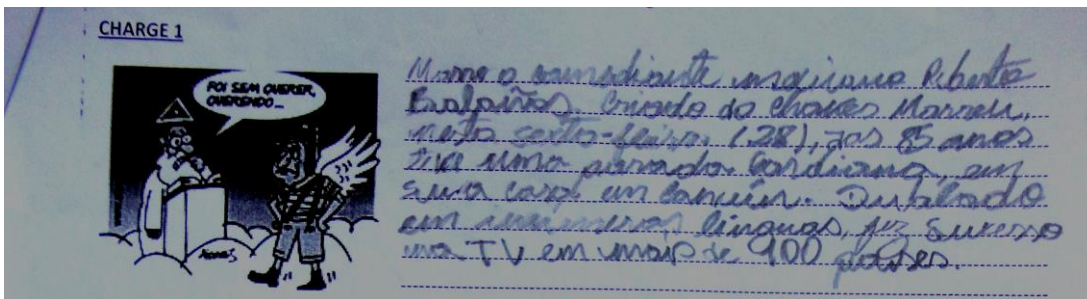 CHARGE 1
FOI SEM QUERER,
QUERENDO...
Morre o comediante mexicano Roberto
Bolaños. Criador do Chaves Morreu,
nesta sexta-feira (28), aos 85 anos
teve uma parada Cardíaca, em
sua casa em Cancún. Dublado
em inúmeras línguas, fez Sucesso
na TV em mais de 100 países.